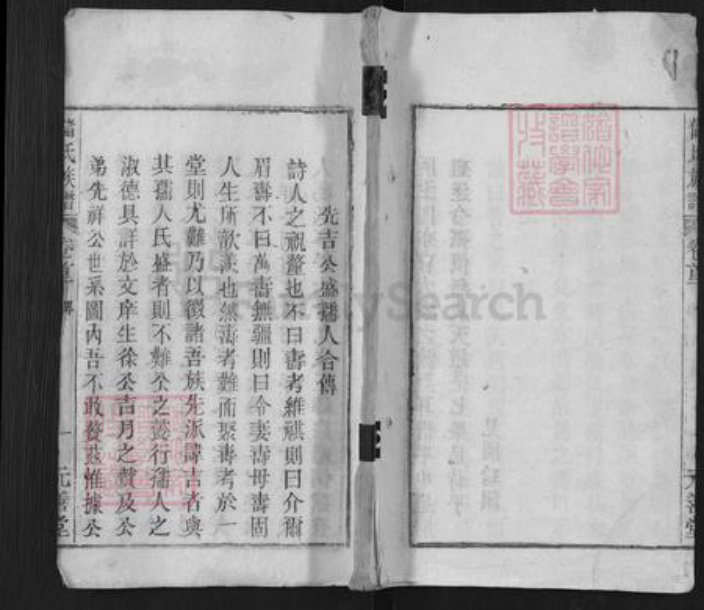 先吉公盛孺人合傳
詩人之祝釐也不曰壽考維祺則曰介爾
眉壽不曰萬壽無疆則曰令妻壽母壽固
人生所歆羨也然壽考難而聚壽考於一
堂則尤難乃以徵諸吾族先派諱吉者與
其孺人氏盛者則不難公之懿行孺人之
淑德具詳於文庠生徐公吉月之贊及公
弟先祥公世系圖內吾不敢贅茲惟據公
儲氏族譜 卷首 一 元善堂
族譜 卷首 元善堂
FamilySearch